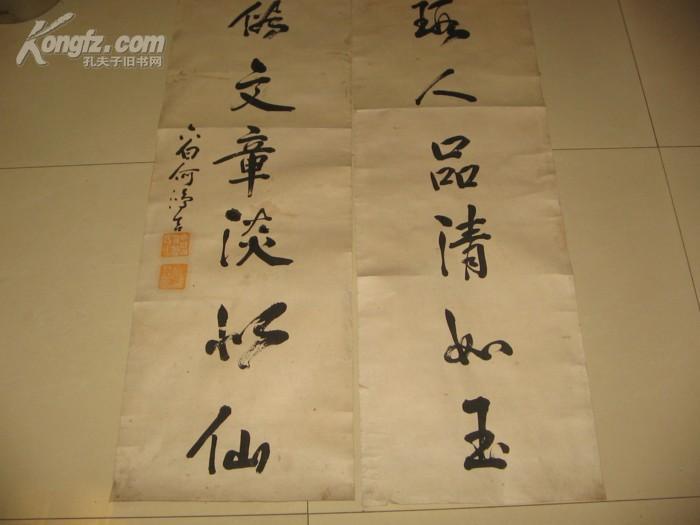 Kongfz.com
孔夫子旧书网
人品清如玉
文章淡似仙
六白何鸿吉